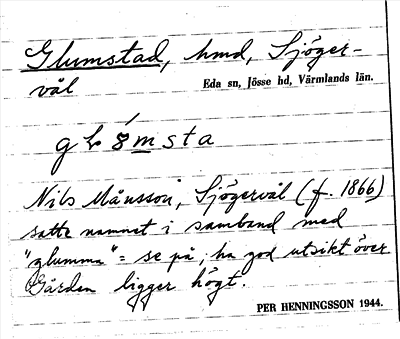 Glumstad, hmd, Sjöger-
väl
Eda sn, Jösse hd, Värmlands län.
Nils Månsson, Sjögerväl (f. 1866)
satte namnet i samband med
"glumma" = se på; ha god utsikt över
Gården ligger högt.
PER HENNINGSSON 1944.